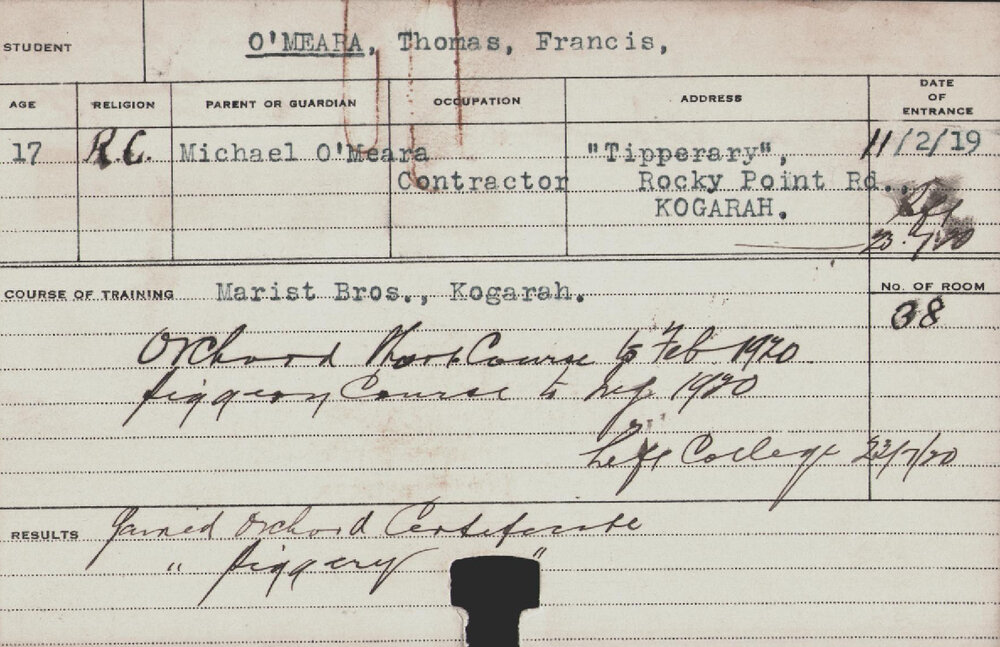 STUDENT O'MEARA, Thomas, Francis,
AGE RELIGION PARENT OR GUARDIAN OCCUPATION ADDRESS DATE OF ENTRANCE
17 R.C. Michael O'Meara "Tipperary", 11/2/19
Contractor Rocky Point Rd.,
KOGARAH. Left
23.7/20
COURSE OF TRAINING Marist Bros., Kogarah. No. OF ROOM
38
Orchard Short Course to Feb 1920
Piggery Course to 1920
Left College 23/7/20
RESULTS Gained Orchard Certificate
" Piggery "